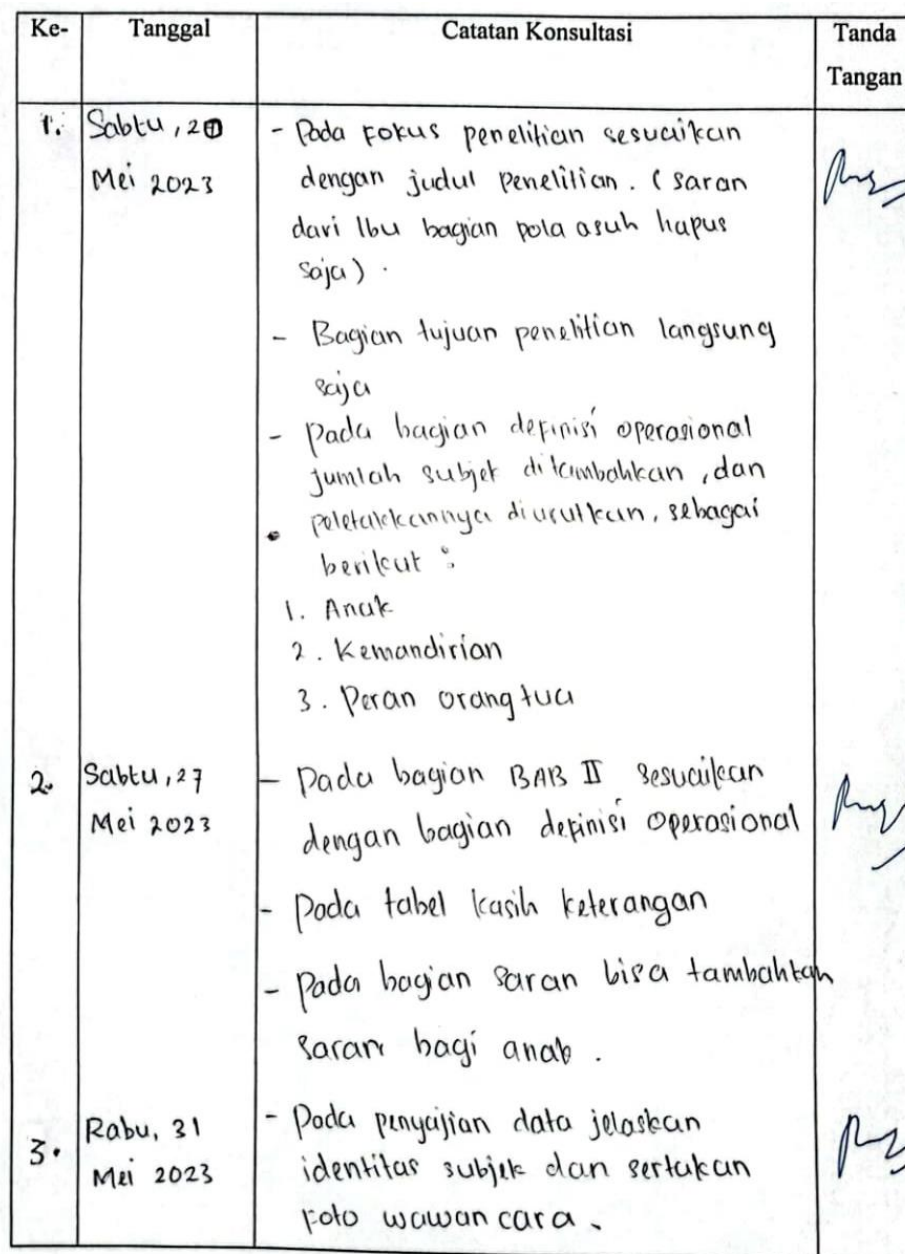 Ke- Tanggal Catatan Konsultasi Tanda
Tangan
1. Sabtu, 20 - Pada Fokus penelitian sesuaikan
Mei 2023 dengan judul penelitian. (saran
dari Ibu bagian pola asuh hapus
saja).
- Bagian tujuan penelitian langsung
saja
- pada bagian definisi operasional
jumlah subjek ditambahkan, dan
peletakkannya diurutkan, sebagai
berikut :
1. Anak
2. Kemandirian
3. Peran orang tua
2. Sabtu, 27 - Pada bagian BAB II sesuaikan
Mei 2023 dengan bagian definisi operasional
- Pada tabel kasih keterangan
- pada bagian saran bisa tambahkan
saran bagi anak.
3. Rabu, 31 - Pada penyajian data jelaskan
Mei 2023 identitas subjek dan sertakan
Foto wawancara.